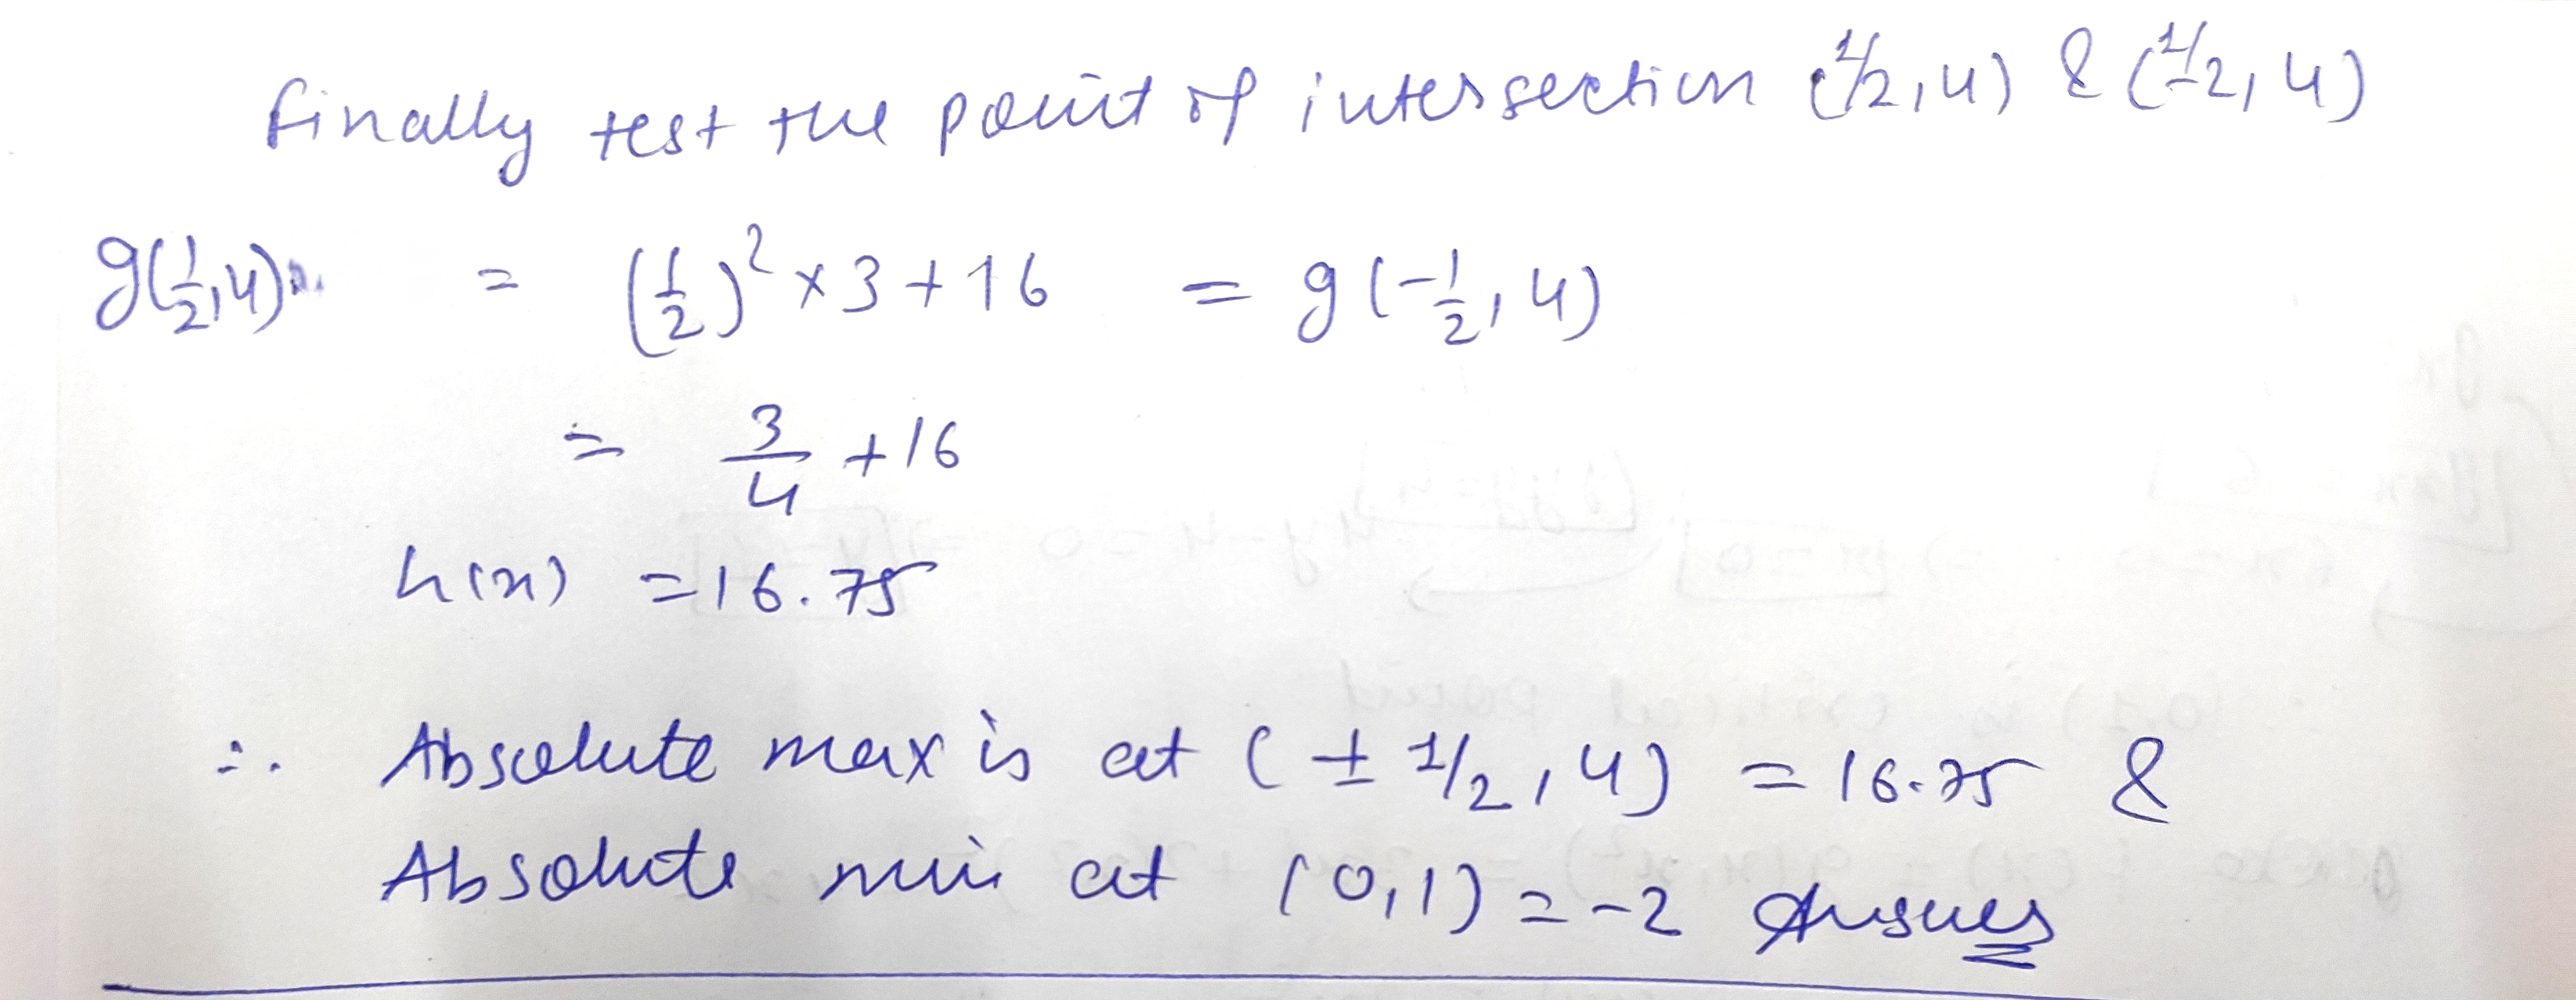 finally test the point of intersection (1/2, 4) & (1/-2, 4)
g(1/2, 4) = (1/2)² × 3 + 16 = g(-1/2, 4)
= 3/4 + 16
h(x) = 16.75
∴ Absolute max is at (± 1/2, 4) = 16.75 &
Absolute min at (0, 1) = -2 Answer